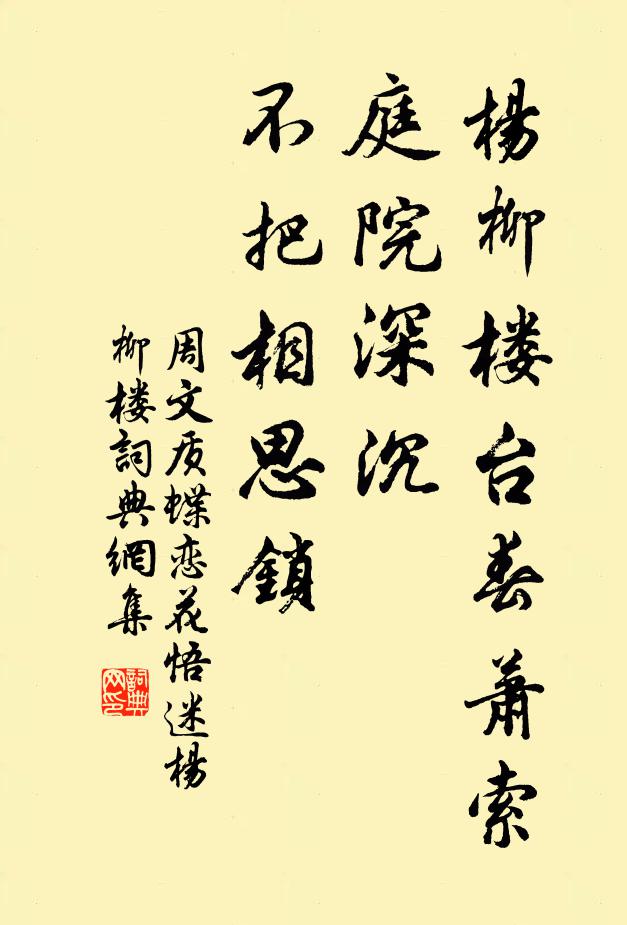 楊柳楼台春蕭索
庭院深沉
不把相思鎖
周文质蝶恋花悟迷楊
柳楼詞典網集
詞典网印